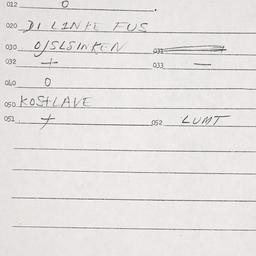 012 0
020 DI LINKE FUS
030 O/SLSINKEN 031
032 + 033 —
040 0
050 KOSTLAVE
051 + 052 LUMT